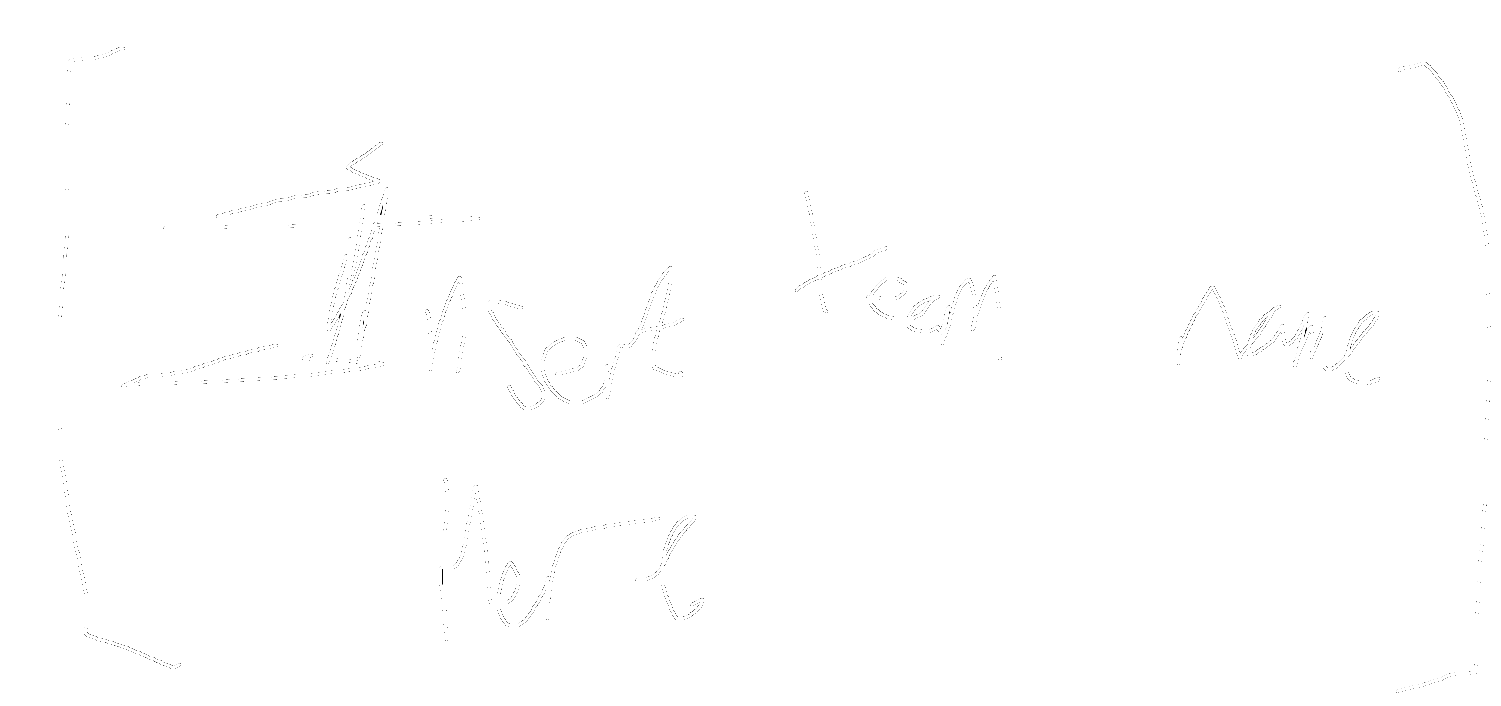 [Insert team name
Here]